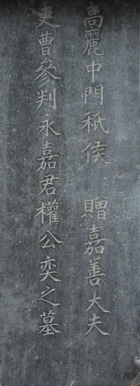 高麗中門祗侯 贈嘉善大夫
吏曹參判永嘉君權公奕之墓